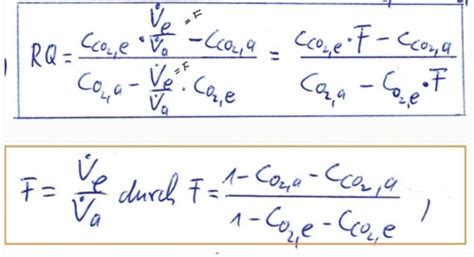 ) RQ = (C_CO₂,e · V̇e/V̇a =F − C_CO₂,a) / (C_O₂,a − V̇e/V̇a =F · C_O₂,e) = (C_CO₂,e · F − C_CO₂,a) / (C_O₂,a − C_O₂,e · F)
F = V̇e/V̇a durch F = (1 − C_O₂,a − C_CO₂,a) / (1 − C_O₂,e − C_CO₂,e) ,